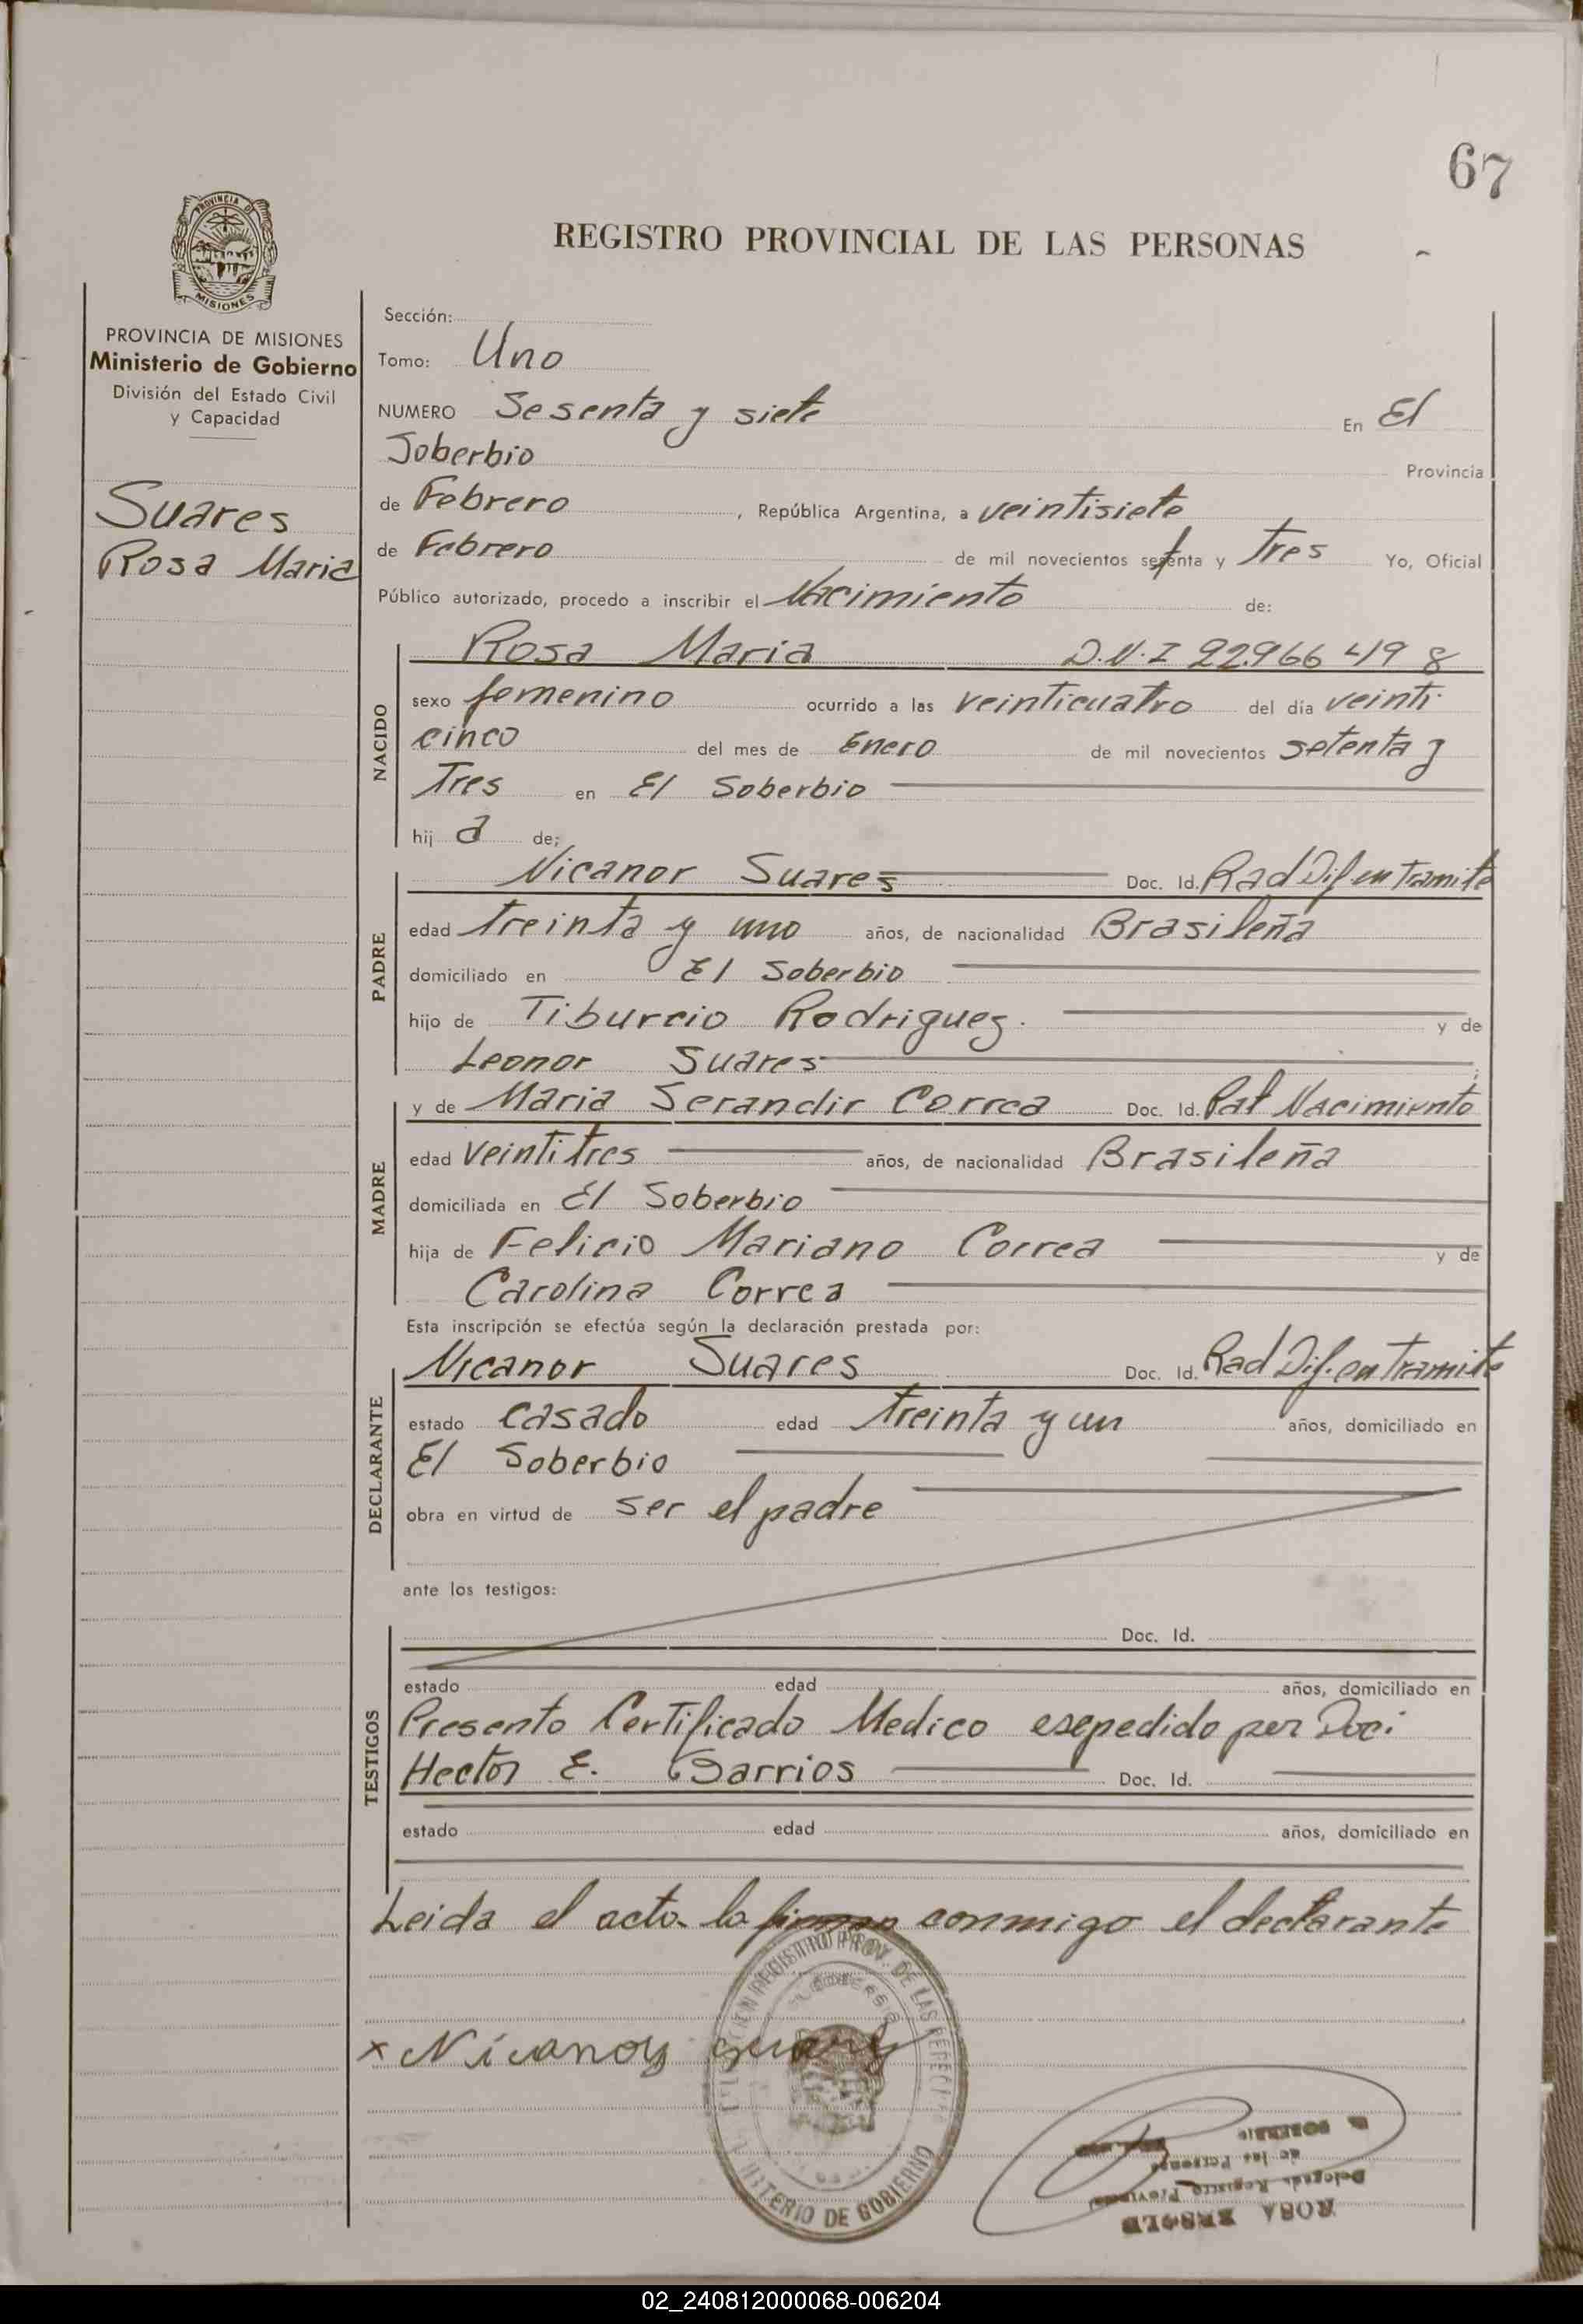 67
REGISTRO PROVINCIAL DE LAS PERSONAS
PROVINCIA DE
MISIONES
PROVINCIA DE MISIONES
Ministerio de Gobierno
División del Estado Civil
y Capacidad
Suares
Rosa Maria
Sección:
Tomo: Uno
NUMERO Sesenta y siete En El
Soberbio Provincia
de Febrero, República Argentina, a veintisiete
de Febrero de mil novecientos setenta y Tres Yo, Oficial
Público autorizado, procedo a inscribir el Nacimiento de:
NACIDO
Rosa Maria D.N.I 22.966 419 8
sexo femenino ocurrido a las veinticuatro del día veinti
cinco del mes de Enero de mil novecientos setenta y
Tres en El Soberbio
hij a de;
PADRE
Nicanor Suares Doc. Id. Rad Dif en Tramite
edad treinta y uno años, de nacionalidad Brasileña
domiciliado en El Soberbio
hijo de Tiburcio Rodriguez. y de
Leonor Suares
MADRE
y de Maria Serandir Correa Doc. Id. Pat Nacimiento
edad Veintitres años, de nacionalidad Brasileña
domiciliada en El Soberbio
hija de Felicio Mariano Correa y de
Carolina Correa
Esta inscripción se efectúa según la declaración prestada por:
DECLARANTE
Nicanor Suares Doc. Id. Rad Dif. en Tramite
estado casado edad treinta y un años, domiciliado en
El Soberbio
obra en virtud de ser el padre
ante los testigos:
TESTIGOS
Doc. Id.
estado edad años, domiciliado en
Presento Certificado Medico esepedido per Doci
Hector E. Barrios Doc. Id.
estado edad años, domiciliado en
Leida el acta la firman conmigo el declarante
x Nicanor
REGISTRO PROV. DE LAS
MINISTERIO DE GOBIERNO
EL SOBERBIO
de las Personas
Delegada Registro Provincial
ROSA
02_240812000068-006204